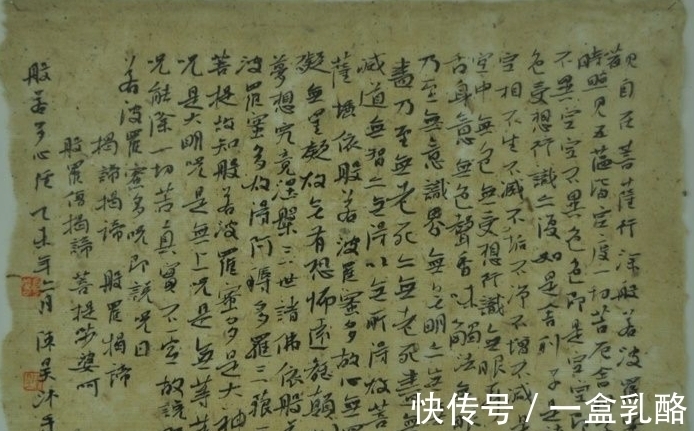 觀自在菩薩行深般若波羅
時照見五蘊皆空度一切苦厄舍
不異空空不異色色即是空空
色受想行識亦復如是舍利子是
空相不生不滅不垢不淨不增不減
空中無色無受想行識無眼
舌身意無色聲香味觸法無
乃至無意識界無無明亦無
盡乃至無老死亦無老死盡無
滅道無智亦無得以無所得故菩
薩埵依般若波羅蜜多故心無
礙無罣礙故無有恐怖遠離顛
夢想究竟涅槃三世諸佛依般若
波羅蜜多故得阿耨多羅三藐
菩提故知般若波羅蜜多是大神
咒是大明咒是無上咒是無等等
咒能除一切苦真實不虛故說
若波羅蜜多咒即說咒曰
揭諦揭諦 般羅揭諦
般羅僧揭諦 菩提娑婆呵
般若多心經 乙未年 月 吳沐手
快传号/一盒乳酪